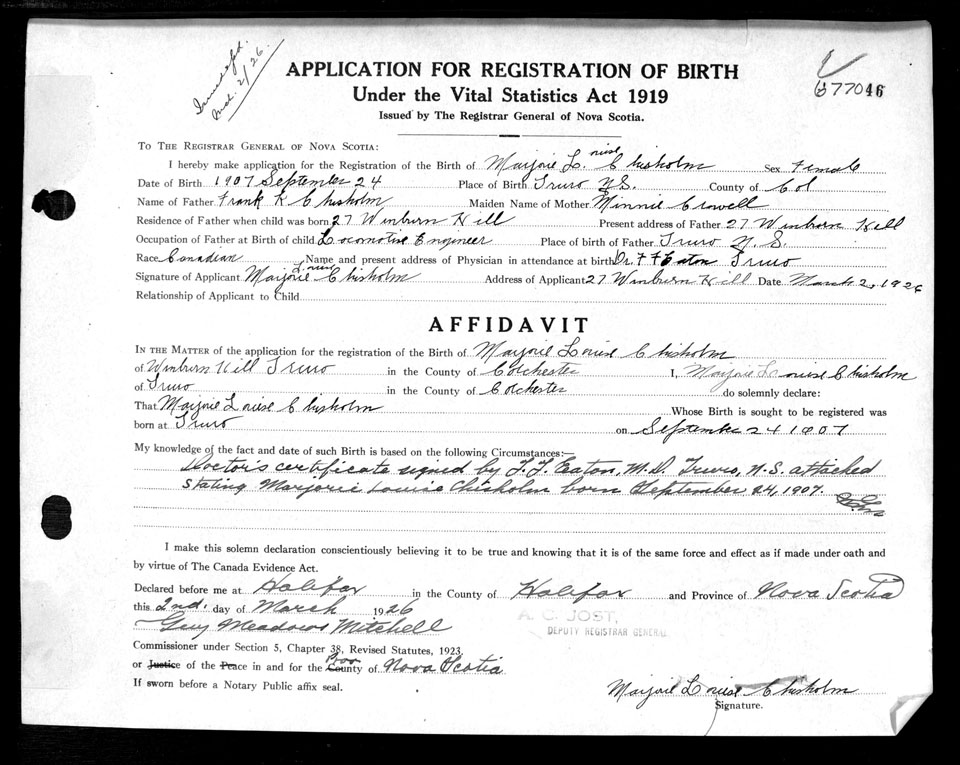 Issued Mch. 2/26.
APPLICATION FOR REGISTRATION OF BIRTH
67704 6
Under the Vital Statistics Act 1919
Issued by The Registrar General of Nova Scotia.
TO THE REGISTRAR GENERAL OF NOVA SCOTIA:
I hereby make application for the Registration of the Birth of Marjorie Louise Chisholm Sex Female
Date of Birth 1907 September 24 Place of Birth Truro N.S. County of Col
Name of Father Frank K Chisholm Maiden Name of Mother Minnie Crowell
Residence of Father when child was born 27 Winburn Hill Present address of Father 27 Winburn Hill
Occupation of Father at Birth of child Locomotive Engineer Place of birth of Father Truro N.S.
Race Canadian Name and present address of Physician in attendance at birth Dr. F F Eaton Truro
Signature of Applicant Marjorie Louise Chisholm Address of Applicant 27 Winburn Hill Date March 2, 1926
Relationship of Applicant to Child
AFFIDAVIT
IN THE MATTER of the application for the registration of the Birth of Marjorie Louise Chisholm
of Winburn Hill Truro in the County of Colchester I, Marjorie Louise Chisholm
of Truro in the County of Colchester do solemnly declare:
That Marjorie Louise Chisholm Whose Birth is sought to be registered was
born at Truro on September 24 1907
My knowledge of the fact and date of such Birth is based on the following Circumstances:—
Doctor's certificate signed by F. F. Eaton, M.D. Truro, N.S. attached
stating Marjorie Louise Chisholm born September 24, 1907.
I make this solemn declaration conscientiously believing it to be true and knowing that it is of the same force and effect as if made under oath and
by virtue of The Canada Evidence Act.
Declared before me at Halifax in the County of Halifax and Province of Nova Scotia
this 2nd. day of March 1926
A. C. JOST,
Guy Meadows Mitchell
DEPUTY REGISTRAR GENERAL
Commissioner under Section 5, Chapter 38, Revised Statutes, 1923.
or Justice of the Peace in and for the County Prov of Nova Scotia
If sworn before a Notary Public affix seal.
Marjorie Louise Chisholm
Signature.